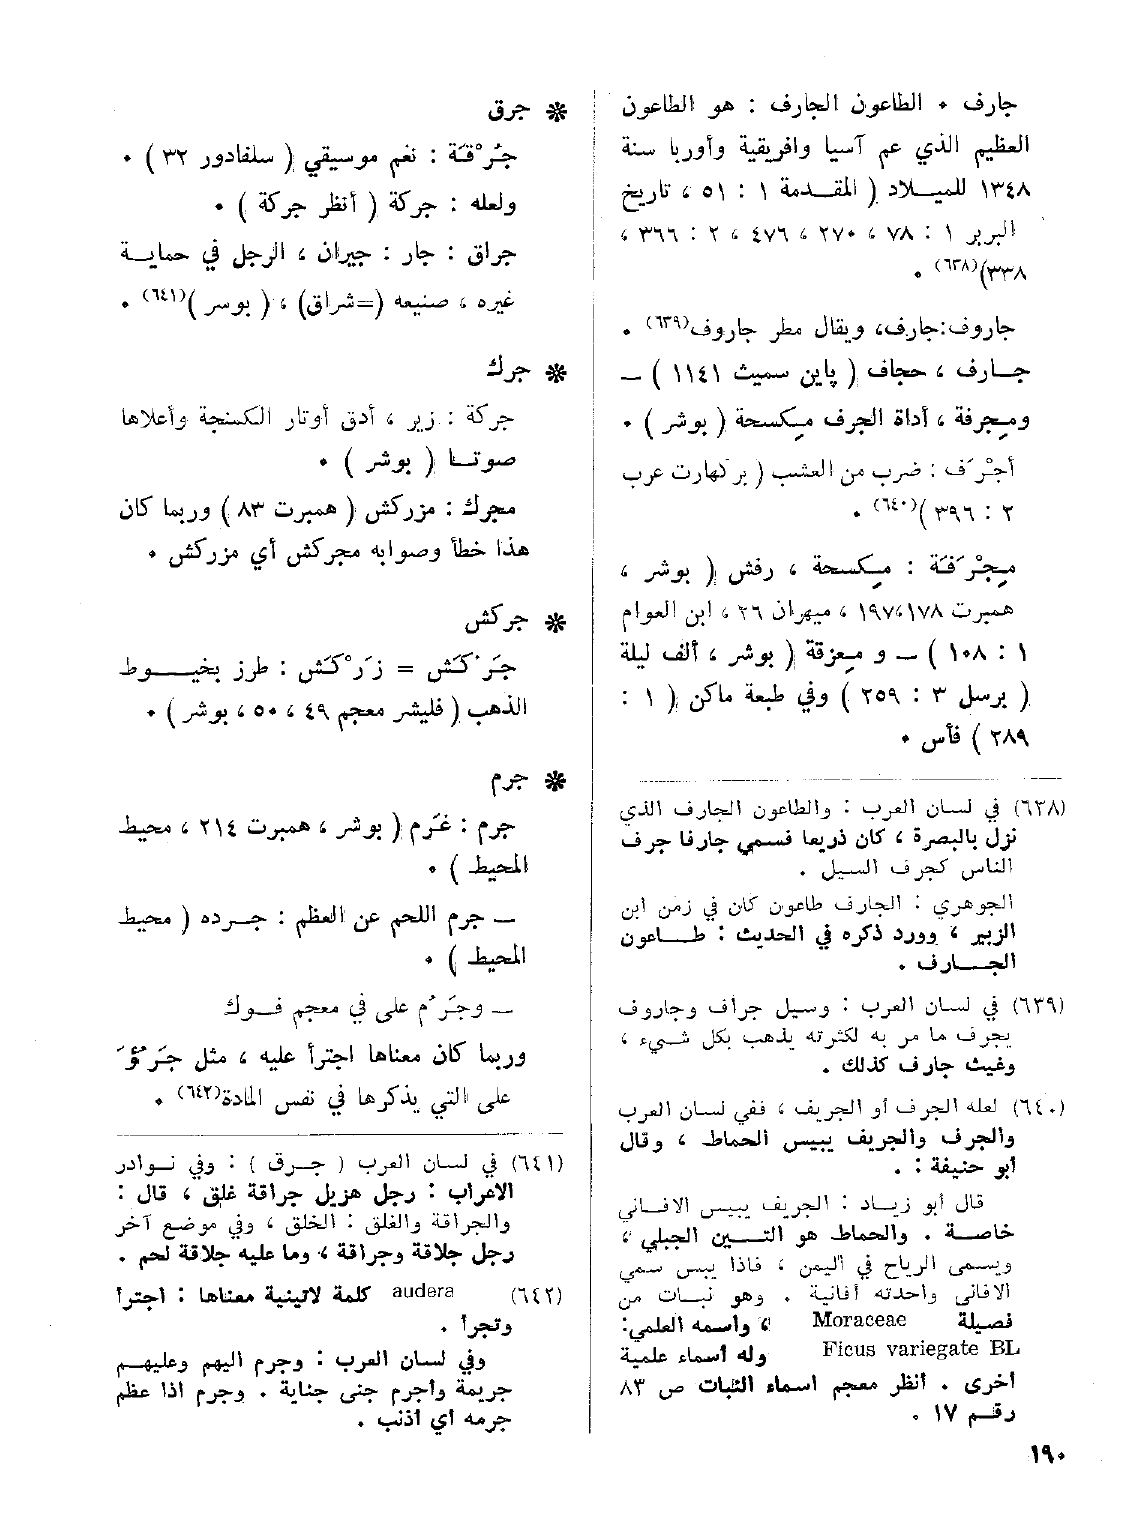 جارف ٠ الطاعون الجارف : هو الطاعون
العظيم الذي عم آسيا وافريقية وأوربا سنة
١٣٤٨ للميــلاد ( المقـدمة ١ : ٥١ ، تاريخ
البربر ١ : ٧٨ ، ٢٧٠ ، ٤٧٦ ، ٢ : ٣٦٦ ،
٣٣٨)(٦٣٨) ٠
جاروف:جارف، ويقال مطر جاروف(٦٣٩) ٠
جــارف ، حجاف ( پاين سميث ١١٤١ ) ــ
ومِجرفة ، أداة الجرف مِكسحة ( بوشر ) ٠
أجْرَف : ضرب من العشب ( بركهارت عرب
٢ : ٣٩٦ )(٦٤٠) ٠
مِجْرَفَة : مِكسحة ، رفش ( بوشر ،
همبرت ١٧٨،١٩٧ ، ميهران ٢٦ ، ابن العوام
١ : ١٠٨ ) ــ و مِعزقة ( بوشر ، ألف ليلة
( برسل ٣ : ٢٥٩ ) وفي طبعة ماكن ( ١ :
٢٨٩ ) فأس ٠
(٦٣٨) في لسان العرب : والطاعون الجارف الذي
نزل بالبصرة ، كان ذريعا فسمي جارفا جرف
الناس كجرف السيل .
الجوهري : الجارف طاعون كان في زمن ابن
الزبير ، وورد ذكره في الحديث : طــاعون
الجــارف .
(٦٣٩) في لسان العرب : وسيل جراف وجاروف
يجرف ما مر به لكثرته يذهب بكل شيء ،
وغيث جارف كذلك .
(٦٤٠) لعله الجرف أو الجريف ، ففي لسان العرب
والجرف والجريف يبيس الحماط ، وقال
أبو حنيفة : .
قال أبو زيـاد : الجريف يبيس الافـاني
خاصـة . والحماط هو التــين الجبلي ،
ويسمى الرياح في اليمن ، فاذا يبس سمي
الافانى واحدته أفانية . وهو نبـات من
فصيلة Moraceae ، واسمه العلمي:
Ficus variegate BL وله أسماء علمية
أخرى . أنظر معجم اسماء النبات ص ٨٣
رقـم ١٧ .
❋ جرق
جُرْقَة : نغم موسيقي ( سلفادور ٣٢ ) ٠
ولعله : جركة ( أنظر جركة ) ٠
جراق : جار : جيران ، الرجل في حمايـة
غيره ، صنيعه (=شراق) ، ( بوسر )(٦٤١) ٠
❋ جرك
جركة : زير ، أدق أوتار الكمنجة وأعلاها
صوتــا ( بوشر ) ٠
مجرك : مزركش ( همبرت ٨٣ ) وربما كان
هذا خطأ وصوابه مجركش أي مزركش ٠
❋ جركش
جَرْكَش = زَرْكَش : طرز بخيــوط
الذهب ( فليشر معجم ٤٩ ، ٥٠ ، بوشر ) ٠
❋ جرم
جرم : غَرم ( بوشر ، همبرت ٢١٤ ، محيط
المحيط ) ٠
ــ جرم اللحم عن العظم : جــرده ( محيط
المحيط ) ٠
ــ وجَرُم على في معجم فـوك
وربما كان معناها اجترأ عليه ، مثل جَرُؤَ
على التي يذكرها في نفس المادة(٦٤٢) ٠
(٦٤١) في لسان العرب ( جـرق ) : وفي نـوادر
الاعراب : رجل هزيل جراقة غلق ، قال :
والجراقة والغلق : الخلق ، وفي موضع آخر
رجل جلاقة وجراقة ، وما عليه جلاقة لحم .
(٦٤٢) audera كلمة لاتينية معناها : اجترا
وتجرا .
وفي لسان العرب : وجرم اليهم وعليهـم
جريمة وأجرم جنى جناية . وجرم اذا عظم
جرمه اي اذنب .
١٩٠